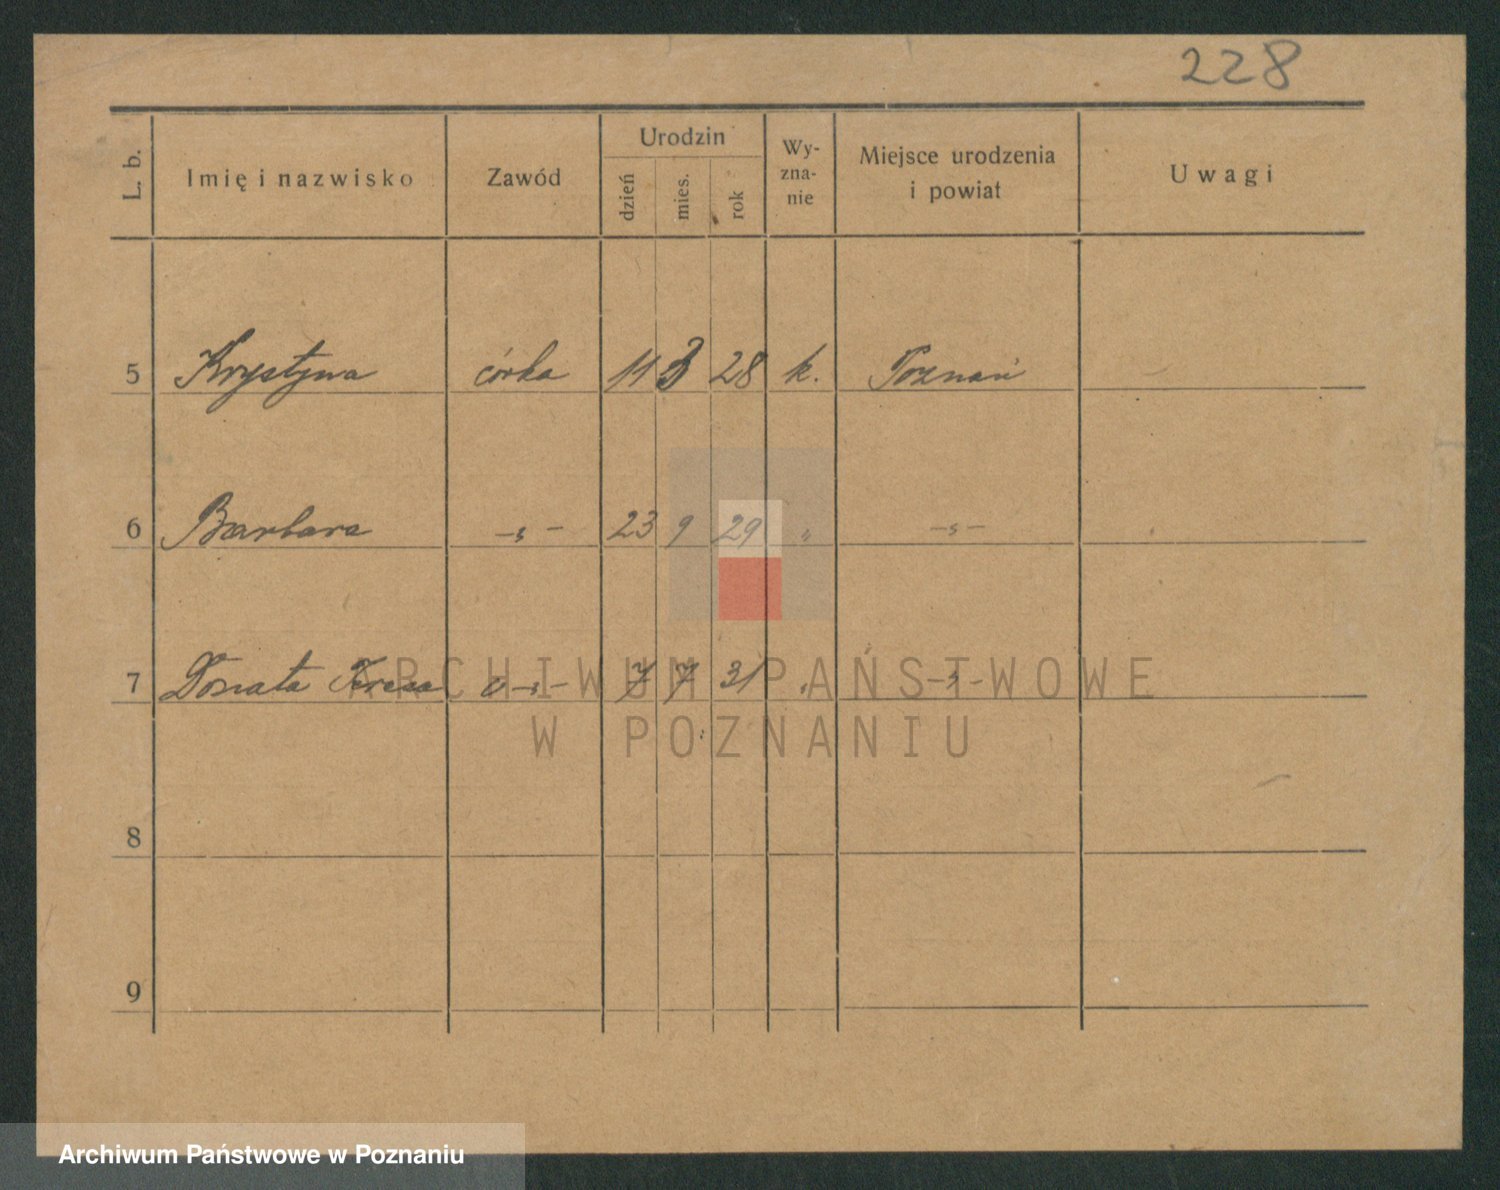 228
L. b. Imię i nazwisko Zawód Urodzin dzień mies. rok Wy-zna-nie Miejsce urodzenia i powiat Uwagi
5 Krystyna córka 11 3 28 k. Poznań
6 Barbara -„- 23 9 29 „ -„-
7 Donata Teresa -„- 7 7 31 „ -„-
8
9
ARCHIWUM PAŃSTWOWE
W POZNANIU
Archiwum Państwowe w Poznaniu